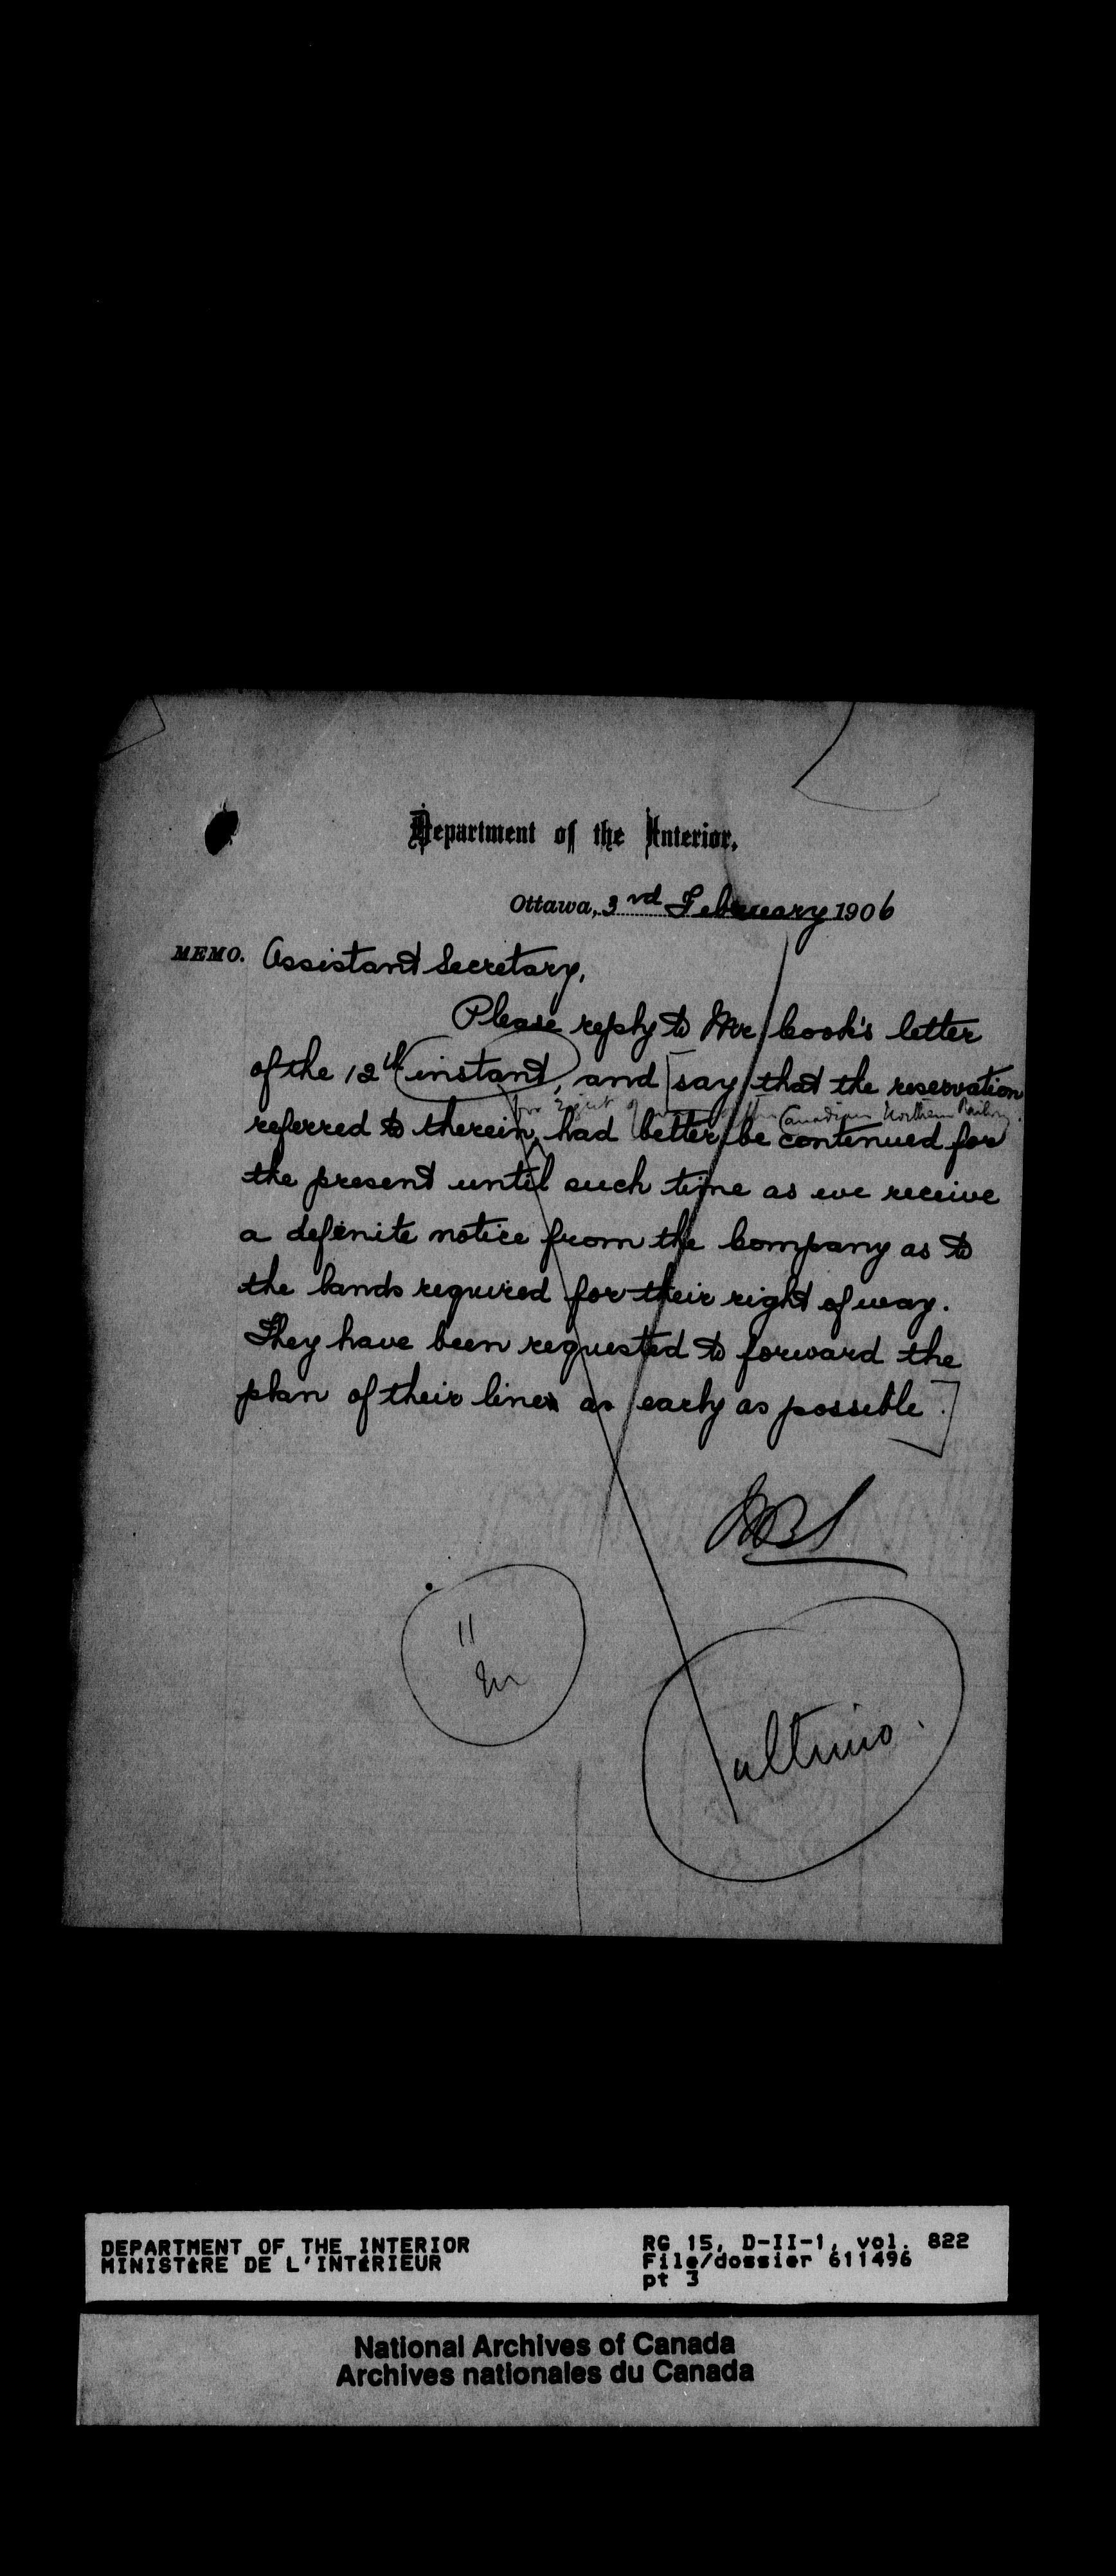 Department of the Interior.
Ottawa, 3rd February 1906
MEMO. Assistant Secretary,
Please reply to Mr Cook's letter
of the 12th instant, and [say that the reservation
for right of way of the Canadian Northern Railway
referred to therein, had better be continued for
the present until such time as we receive
a definite notice from the Company as to
the lands required for their right of way.
They have been requested to forward the
plan of their line as early as possible.]
11
ultimo.
DEPARTMENT OF THE INTERIOR
MINISTÈRE DE L'INTÉRIEUR
RG 15, D-II-1, vol. 822
File/dossier 611496
pt 3
National Archives of Canada
Archives nationales du Canada